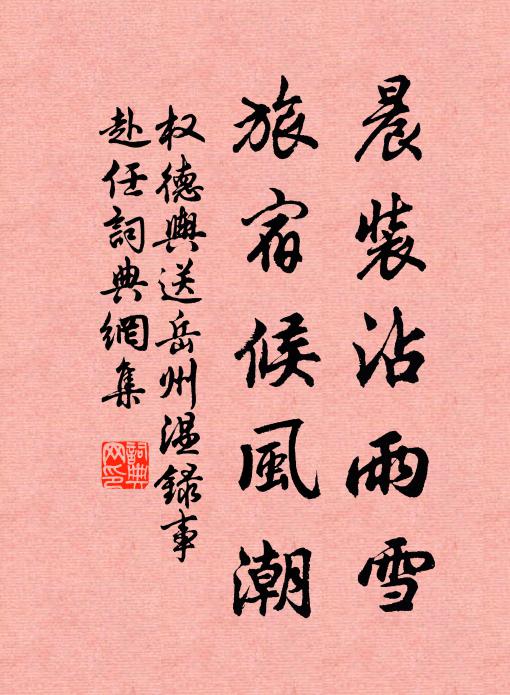 晨裝沾雨雪
旅宿候風潮
权德輿送岳州溫錄事
赴任詞典網集
詞典
网印